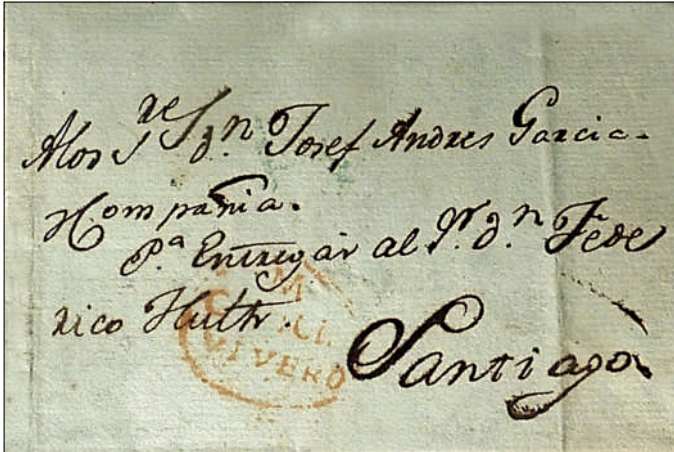 Alos S.res D.n Josef Andres Garcia-
Compañia.
P.a Entregar al S.r D.n Fede
rico Huth.
VIVERO
Santiago